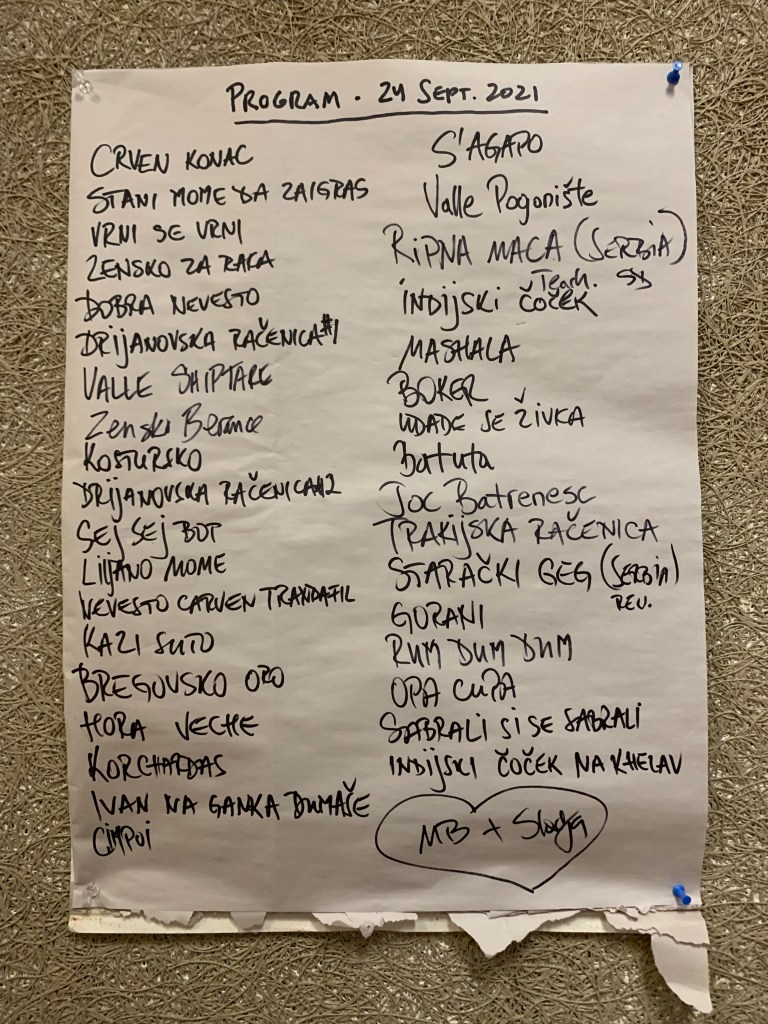 PROGRAM · 24 SEPT. 2021
CRVEN KONAC
STANI MOME DA ZAIGRAS
VRNI SE VRNI
ZENSKO ZA RACA
DOBRA NEVESTO
DRIJANOVSKA RAČENICA #1
VALLE SHIPTARE
Zensko Berance
KOSTURSKO
DRIJANOVSKA RAČENICA #2
SEJ SEJ BOP
LILJANO MOME
NEVESTO CARVEN TRANDAFIL
KAZI SUTO
BREGOVSKO ORO
HORA VECHE
KORCHARDAS
IVAN NA GANKA DUMAŠE
CIMPOI
S'AGAPO
Valle Pogonište
RIPNA MACA (SERBIA)
Teach.
INDIJSKI ČOČEK
MASHALA
BOKER
UDADE SE ŽIVKA
Batuta
Joc Batrenesc
TRAKIJSKA RAČENICA
STARAČKI GEG (SERBIA)
REV.
GORANI
RUM DUM DUM
OPA CUPA
SABRALI SI SE SABRALI
INDIJSKI ČOČEK NA KHELAV
MB + Sladja